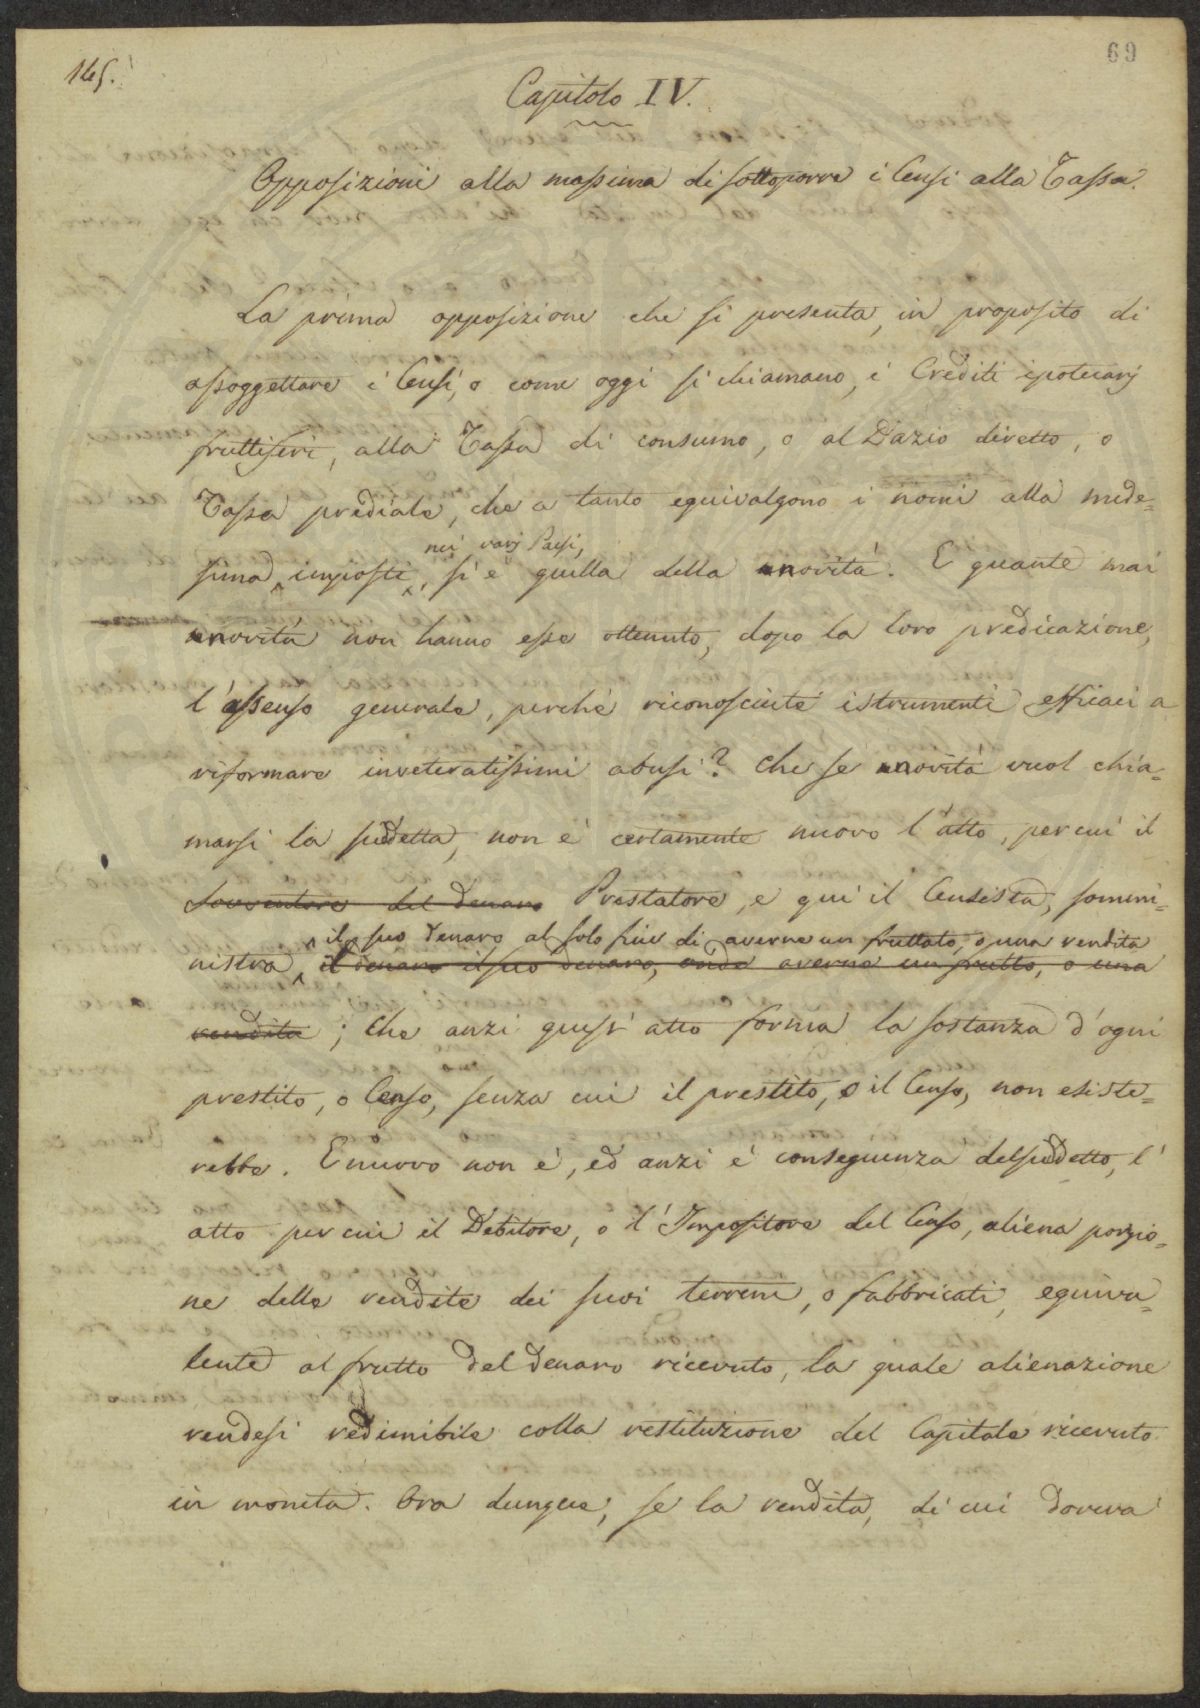 145.
69
Capitolo IV.
Opposizioni alla massima di sottoporre i Censi alla Tassa.
La prima opposizione che si presenta, in proposito di
assoggettare i Censi, o come oggi si chiamano, i Crediti ipotecarj
fruttiferi, alla Tassa di consumo, o al Dazio diretto, o
Tassa prediale, che a tanto equivalgono i nomi alla mede=
nei varj Paesi,
sima imposti, si è quella della novità. E quante mai
novità non hanno esse ottenuto, dopo la loro predicazione,
l'assenso generale, perchè riconosciute istrumenti efficaci a
riformare inveteratissimi abusi? Che se novità vuol chia=
marsi la suddetta, non è certamente nuovo l'atto, per cui il
Sovventore del denaro Prestatore, e qui il Censista, sommi=
il suo denaro al solo fine di averne un fruttato, o una rendita
nistra il denaro il suo denaro, onde averne un frutto, o una
rendita; che anzi quest'atto forma la sostanza d'ogni
prestito, o Censo, senza cui il prestito, o il Censo, non esiste=
rebbe. E nuovo non è, ed anzi è conseguenza del suddetto, l'
atto per cui il Debitore, o l'Impositore del Censo, aliena porzio=
ne delle rendite dei suoi terreni, o fabbricati, equiva=
lente al frutto del denaro ricevuto, la quale alienazione
rendesi redimibile colla restituzione del Capitale ricevuto
in moneta. Ora dunque, se la rendita, di cui doveva